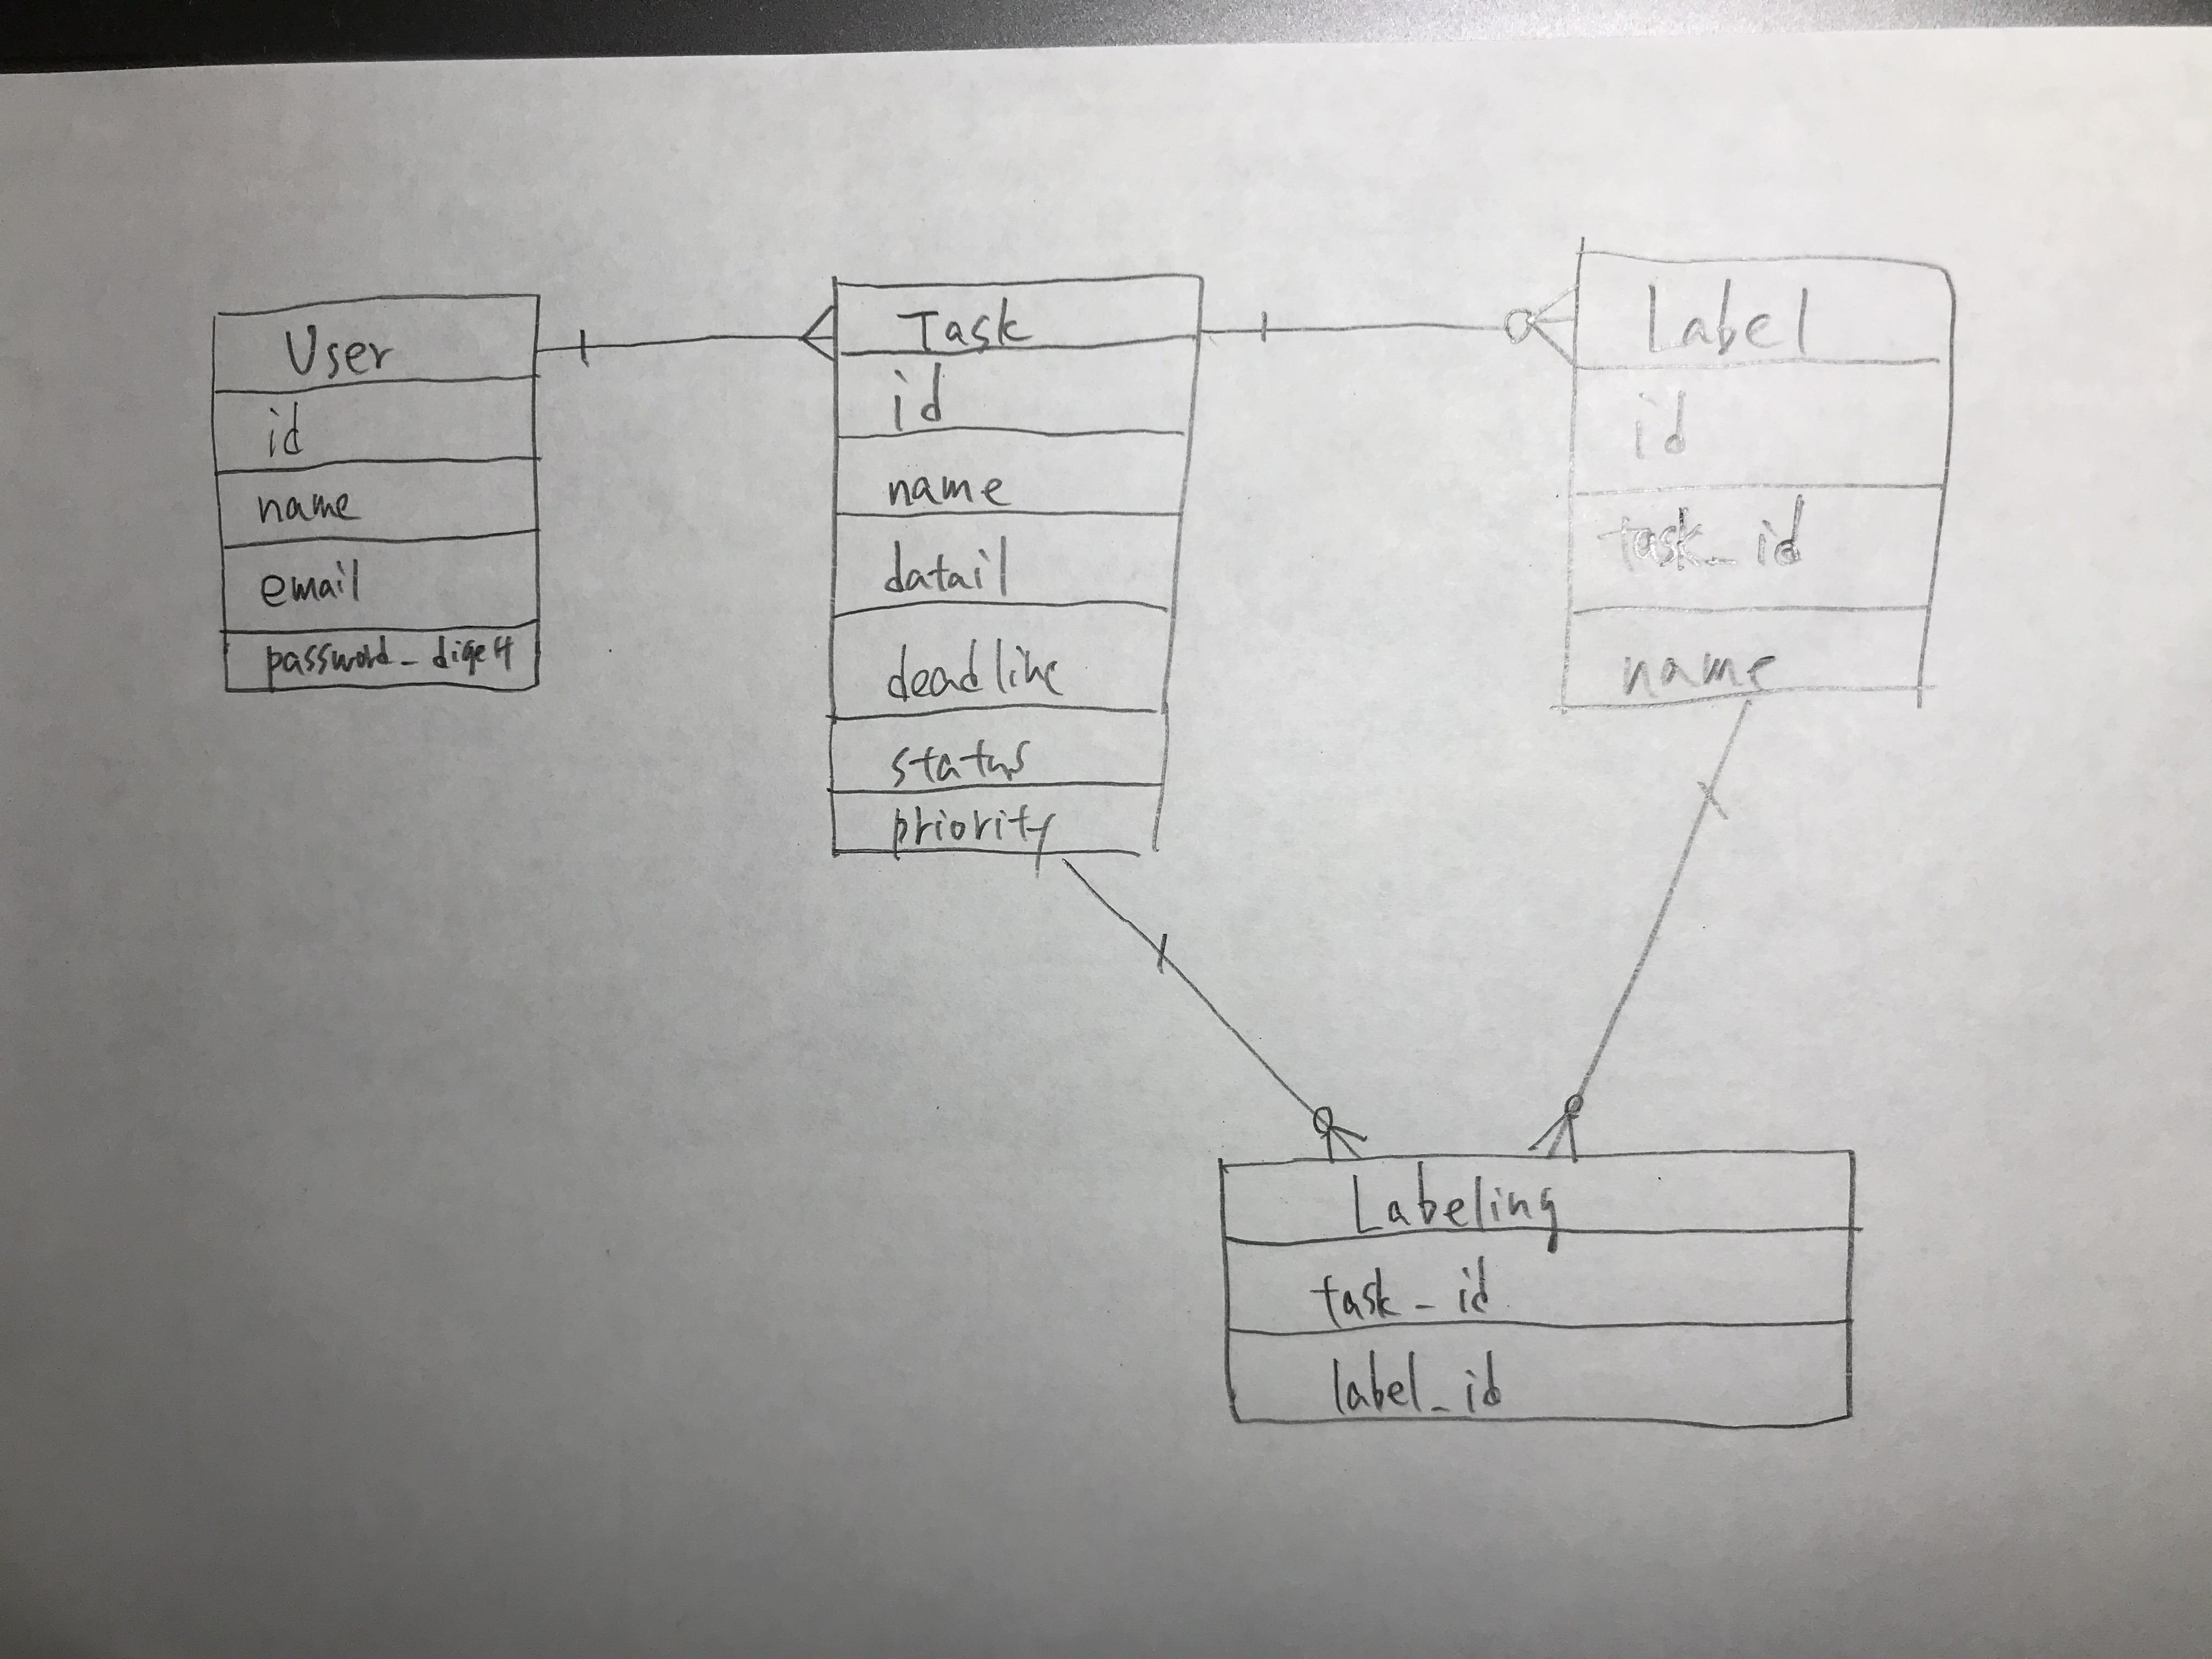 User
id
name
email
password_digest
Task
id
name
datail
deadline
status
priority
Label
id
task_id
name
Labeling
task_id
label_id